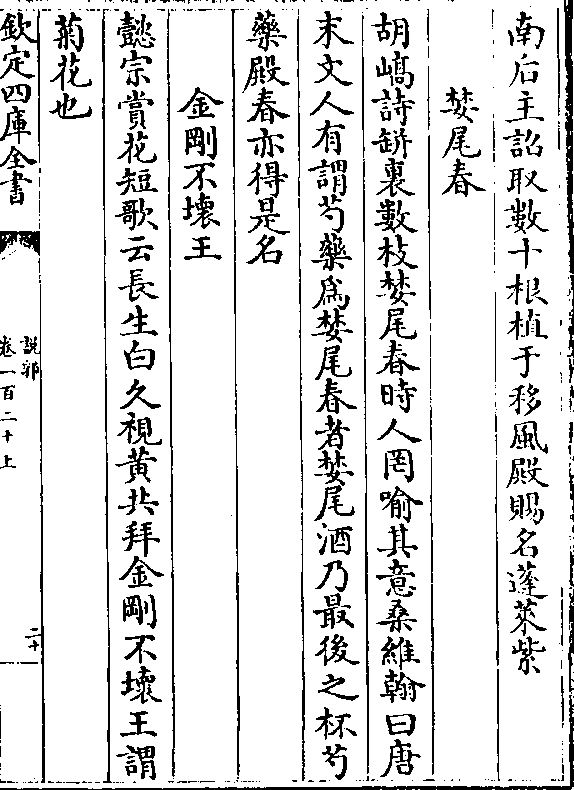 南后主詔取數十根植于移風殿賜名蓬萊紫
婪尾春
胡嶠詩缾裏數枝婪尾春時人罔喻其意桑維翰曰唐
末文人有謂芍藥為婪尾春者婪尾酒乃最後之杯芍
藥殿春亦得是名
金剛不壞王
懿宗賞花短歌云長生白久視黃共拜金剛不壞王謂
菊花也
欽定四庫全書
說郛
卷一百二十上
二十